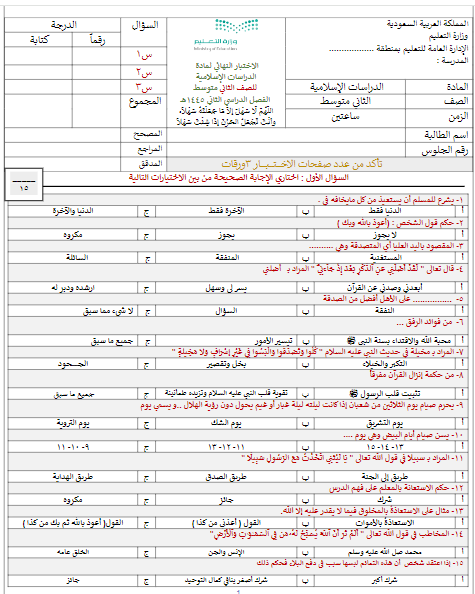 المملكة العربية السعودية
وزارة التعليم
الإدارة العامة للتعليم بمنطقة ..................
المدرسة :
وزارة التعليم
Ministry of Education
الاختبار النهائي لمادة
الدراسات الإسلامية
للصف الثاني متوسط
الفصل الدراسي الثاني ١٤٤٥هـ
اللَّهُمَّ لَا سَهْلَ إِلَّا مَا جَعَلْتَهُ سَهْلًا،
وَأَنْتَ تَجْعَلُ الْحَزْنَ إِذَا شِئْتَ سَهْلًا
السؤال الدرجة
رقماً كتابة
س١
س٢
س٣
المجموع
المصحح
المراجع
المدقق
المادة الدراسات الإسلامية
الصف الثاني متوسط
الزمن ساعتين
اسم الطالبة
رقم الجلوس
تأكد من عدد صفحات الاختبار ٣ورقات
السؤال الأول : اختاري الإجابة الصحيحة من بين الاختيارات التالية
١٥
١- يشرع للمسلم أن يستعيذ من كل مايخافه في .
أ الدنيا فقط ب الآخرة فقط ج الدنيا والآخرة
٢- حكم قول الشخص : (أعوذ بالله وبك )
أ لا يجوز ب يجوز ج مكروه
٣- المقصود باليد العليا أي المتصدقة وهي ..........
أ المستغنية ب المنفقة ج السائلة
٤- قال تعالى " لَقَدْ أَضَلَّنِي عَنِ الذِّكْرِ بَعْدَ إِذْ جَاءَنِي " المراد بـ أضلني
أ أبعدني وصدني عن القرآن ب يسر لي وسهل ج ارشده ودبر له
٥- ................ على الأهل أفضل من الصدقة
أ النفقة ب السؤال ج لا شيء مما سبق
٦- من فوائد الرفق ...
أ محبة الله والاقتداء بسنة النبي ﷺ ب تيسير الأمور ج جميع ما سبق
٧- المراد بـ مخيلة في حديث النبي عليه السلام " كُلُوا وَتَصَدَّقُوا وَالْبَسُوا فِي غَيْرِ إِسْرَافٍ وَلَا مَخِيلَةٍ "
أ التكبر والخيلاء ب بخل وتقصير ج الجـــحود
٨- من حكمة إنزال القرآن مفرقاً
أ تثبيت قلب الرسول ﷺ ب تقوية قلب النبي عليه السلام وتزيده طمأنينة ج جميع ما سبق
٩- يحرم صيام يوم الثلاثين من شعبان إذا كانت ليلته ليلة غبار أو غيم يحول دون رؤية الهلال ..و يسمي يوم
أ يوم التشريق ب يوم الشك ج يوم التروية
١٠- يسن صيام أيام البيض وهي يوم ....
أ ١٣-١٤-١٥ ب ١١-١٢-١٣ ج ٩-١٠-١١
١١- المراد بـ سبيلا في قول الله تعالى " يَا لَيْتَنِي اتَّخَذْتُ مَعَ الرَّسُولِ سَبِيلًا "
أ طريق إلى الجنة ب طريق الصدق ج طريق الهداية
١٢- حكم الاستعانة بالمعلم على فهم الدرس
أ شرك ب جائز ج مكروه
١٣- مثال على الاستعاذة بالمخلوق فيما لا يقدر عليه إلا الله.
أ الاستعاذة بالأموات ب القول ( أعذني من كذا ) ج القول( أعوذ بالله ثم بك من كذا )
١٤- المخاطب في قول الله تعالى " أَلَمْ تَرَ أَنَّ اللَّهَ يُسَبِّحُ لَهُ مَن فِي السَّمَاوَاتِ وَالْأَرْضِ"
أ محمد صل الله عليه وسلم ب الإنس والجن ج الخلق عامه
١٥- إذا اعتقد شخص أن هذه التمائم ليسها سبب في دفع البلاء فحكم ذلك
أ شرك أكبر ب شرك أصغر ينافي كمال التوحيد ج جائز